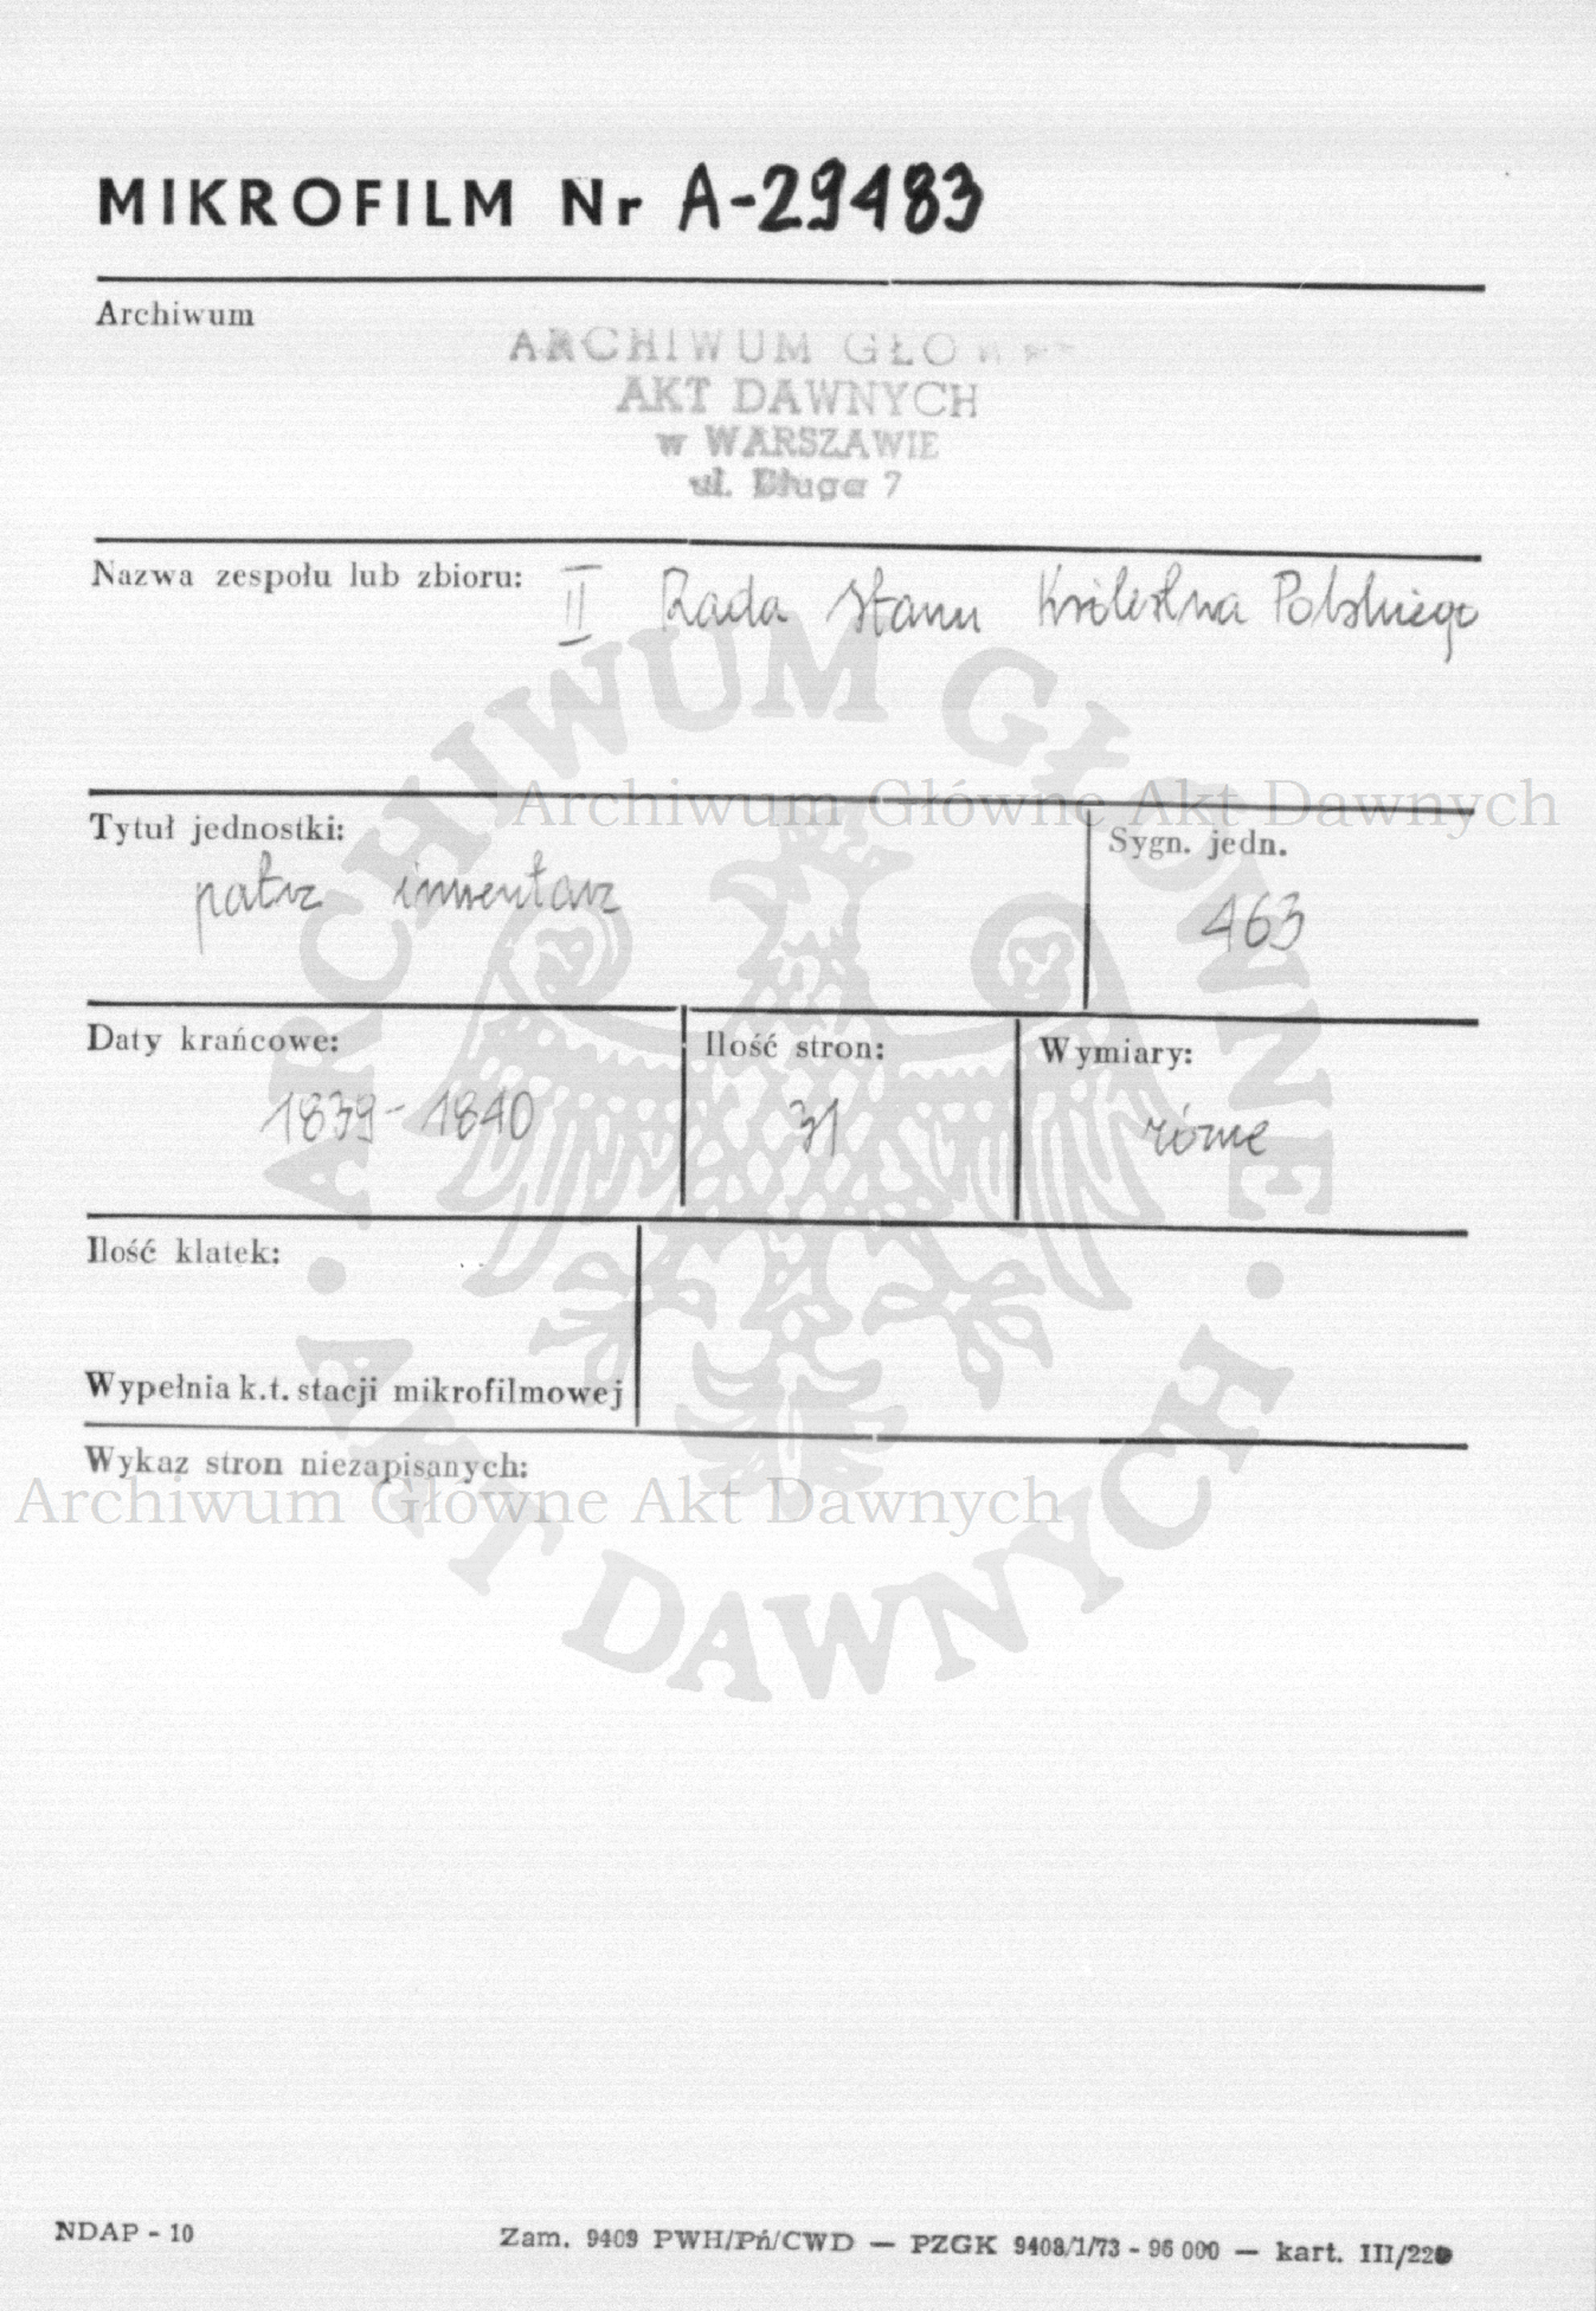 MIKROFILM Nr A-29483
Archiwum
ARCHIWUM
AKT DAWNYCH
w WARSZAWIE
ul. Długa 7
Nazwa zespołu lub zbioru: II Rada Stanu Królestwa Polskiego
Archiwum Główne Akt Dawnych
Tytuł jednostki:
patrz inwentarz
Sygn. jedn.
463
Daty krańcowe:
1839-1840
Ilość stron:
31
Wymiary:
różne
Ilość klatek:
Wypełnia k.t. stacji mikrofilmowej
Wykaz stron niezapisanych:
Archiwum Główne Akt Dawnych
ARCHIWUM GŁÓWNE · AKT DAWNYCH ·
NDAP - 10
Zam. 9409 PWH/Pń/CWD — PZGK 9408/1/73 - 96 000 — kart.